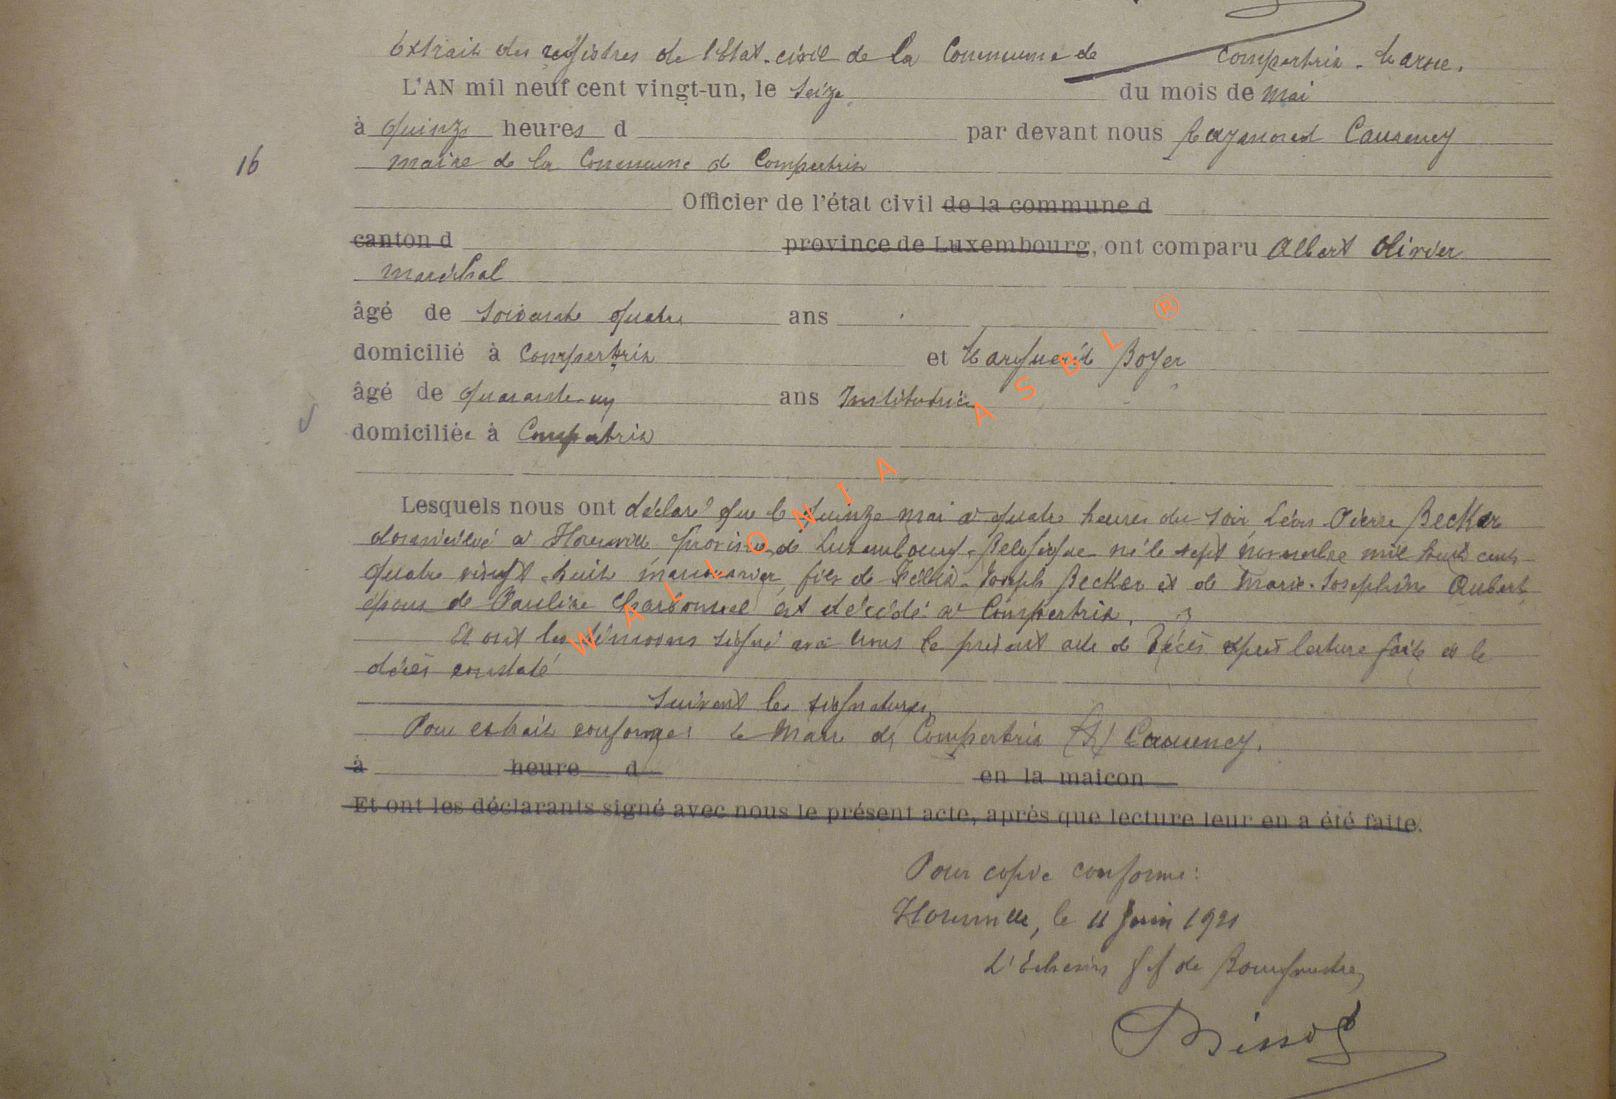 Extrait des registres de l'Etat-civil de la Commune de Compertrix - Marne.
L'AN mil neuf cent vingt-un, le Seize du mois de Mai
à Quinze heures d par devant nous Raymond Caquency
16
maire de la Commune de Compertrix
Officier de l'état civil de la commune d
canton d province de Luxembourg, ont comparu Albert Olivier
maréchal
âgé de Soixante quatre ans
domicilié à Compertrix et Marguerite Boyer
âgé de quarante-un ans Institutrice
domiciliée à Compertrix
Lesquels nous ont déclaré que le quinze mai à quatre heures du soir Léon Pierre Becker
domicilié à Houmville province de Luxembourg, Belgique né le sept novembre mil huit cent
quatre vingt huit manouvrier fils de Joseph Becker et de Marie-Josephine Aubert
époux de Pauline Chardomel est décédé à Compertrix.
Et ont les témoins signé avec nous le présent acte de Décès après lecture faite et le
décès constaté
Suivent les signatures
Pour extrait conforme: le Maire de Compertrix (S) Caquency.
à heure d en la maicon
Et ont les déclarants signé avec nous le présent acte, après que lecture leur en a été faite.
Pour copie conforme:
le 11 Juin 1921
L'Echevin ff de Bourgmestre,
WALLONIA ASBL ®